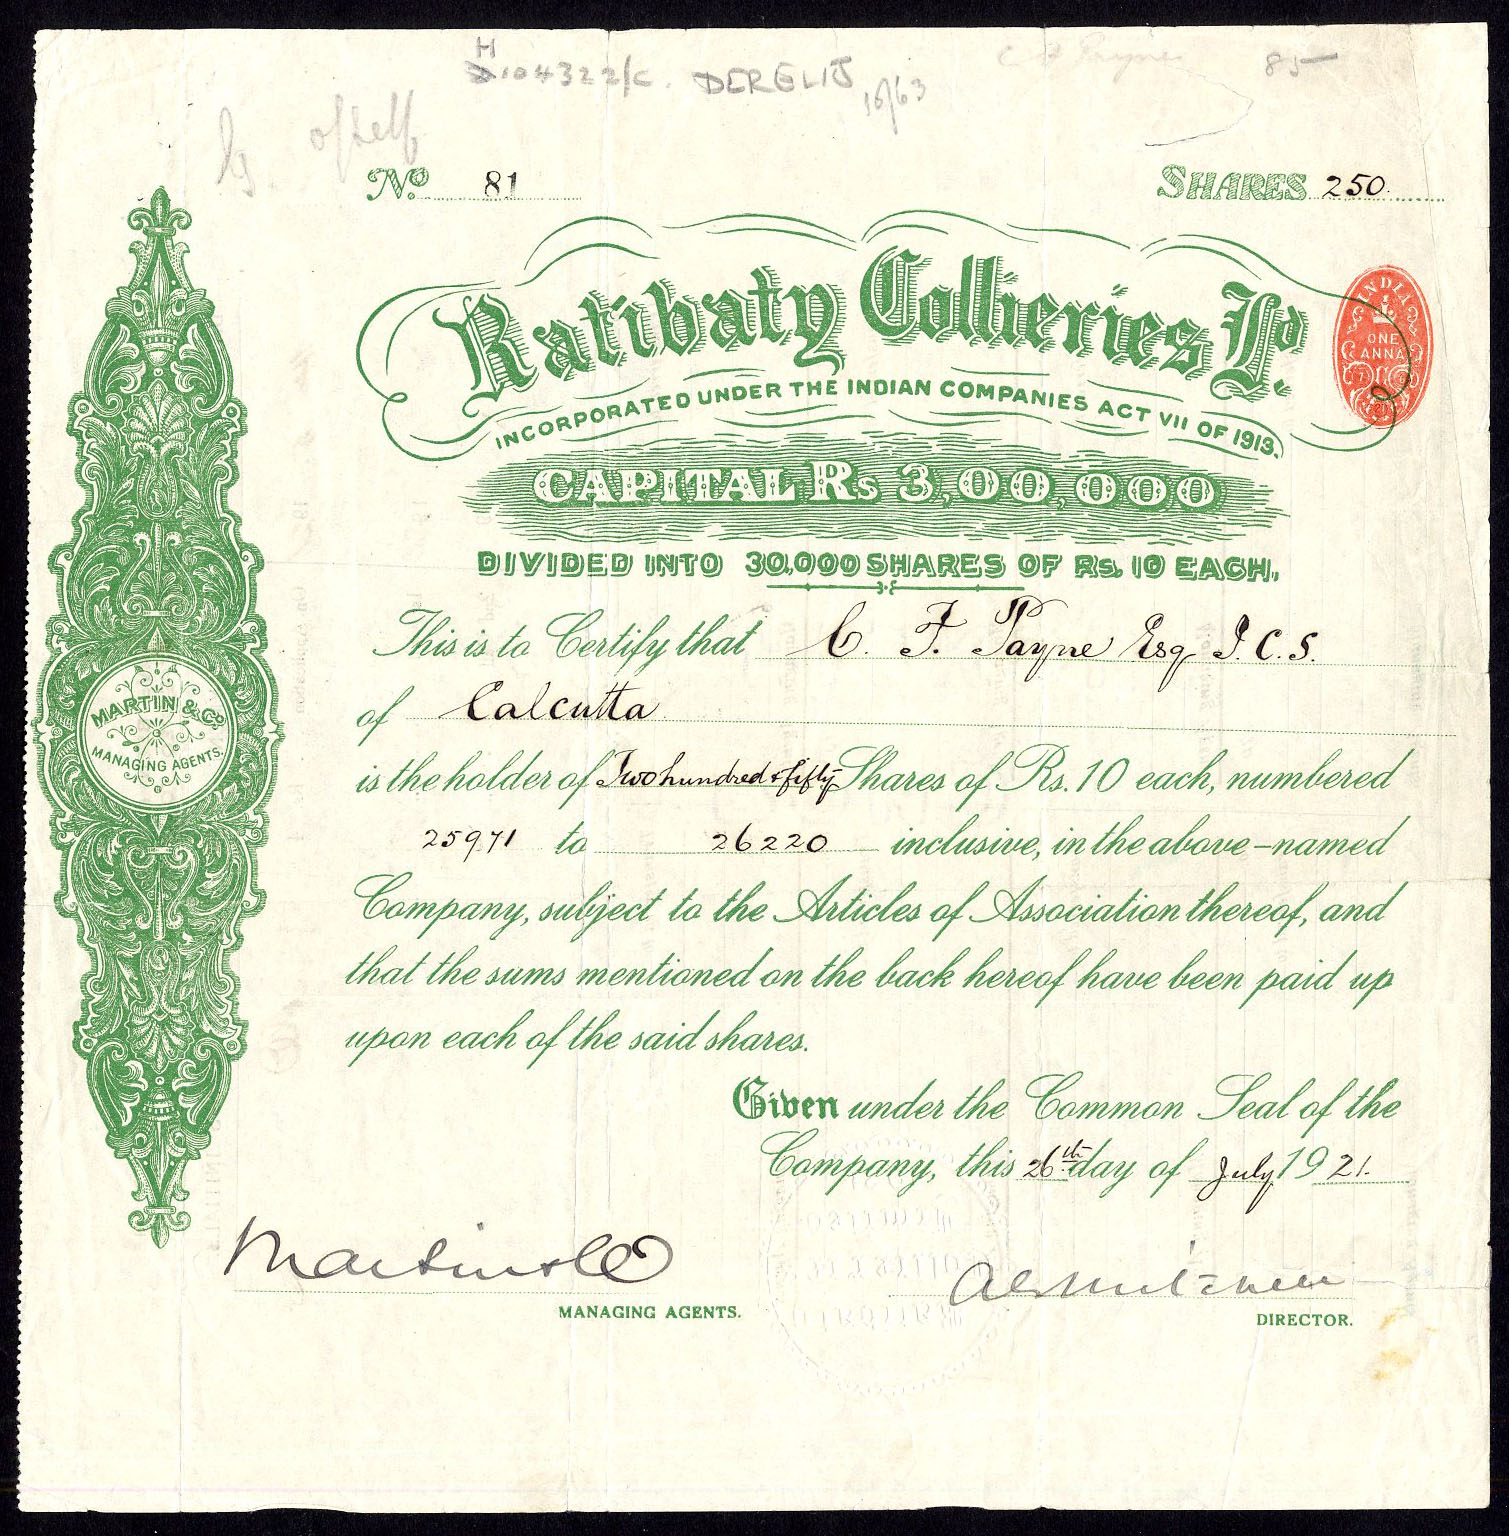 H104322/C. DERELIJ 15/63
C F Payne 85
No. 81
SHARES 250.
Ratibaty Collieries Ld.
INDIA
ONE
ANNA
INCORPORATED UNDER THE INDIAN COMPANIES ACT VII OF 1913.
CAPITAL Rs 3,00,000
DIVIDED INTO 30,000 SHARES OF Rs. 10 EACH.
This is to Certify that C. F. Payne Esq I.C.S.
of Calcutta
MARTIN & Co.
MANAGING AGENTS.
is the holder of Two hundred & fifty Shares of Rs. 10 each, numbered
25971 to 26220 inclusive, in the above-named
Company, subject to the Articles of Association thereof, and
that the sums mentioned on the back hereof have been paid up
upon each of the said shares.
Given under the Common Seal of the
Company, this 26th day of July 1921.
Martin & Co
MANAGING AGENTS.
DIRECTOR.